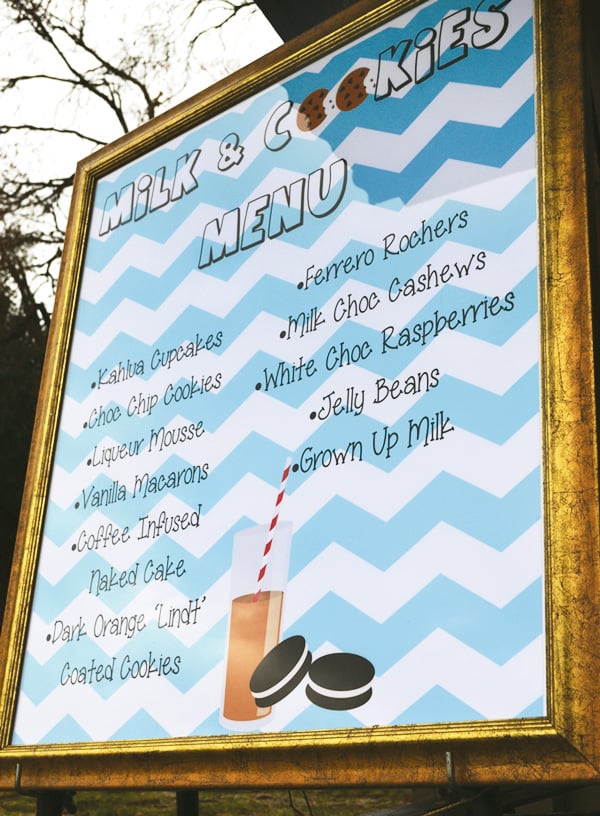 MiLK & COOKiES
MENU
•Kahlua Cupcakes
•Choc Chip Cookies
•Liqueur Mousse
•Vanilla Macarons
•Coffee Infused
Naked Cake
•Dark Orange 'Lindt'
Coated Cookies
•Ferrero Rochers
•Milk Choc Cashews
•White Choc Raspberries
•Jelly Beans
•Grown Up Milk